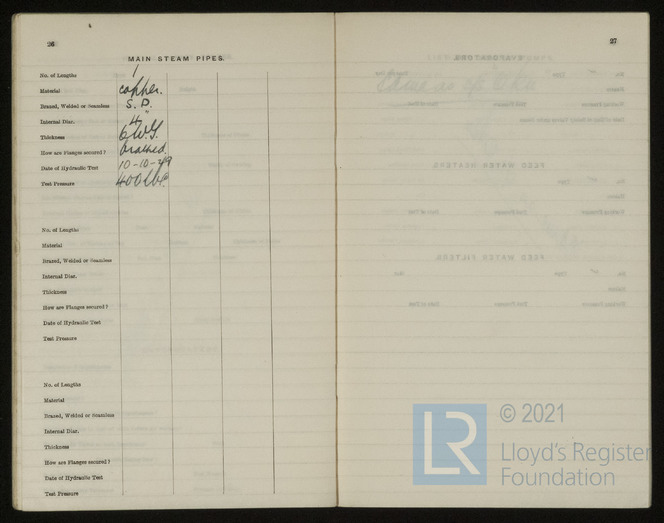 26
MAIN STEAM PIPES.
No. of Lengths 1
Material copper.
Brazed, Welded or Seamless S. D.
Internal Diar. 4"
Thickness 6 W.G.
How are Flanges secured? brazed.
Date of Hydraulic Test 10-10-49
Test Pressure 400 lbs.
No. of Lengths
Material
Brazed, Welded or Seamless
Internal Diar.
Thickness
How are Flanges secured?
Date of Hydraulic Test
Test Pressure
No. of Lengths
Material
Brazed, Welded or Seamless
Internal Diar.
Thickness
How are Flanges secured?
Date of Hydraulic Test
Test Pressure
27
LR
© 2021
Lloyd's Register
Foundation